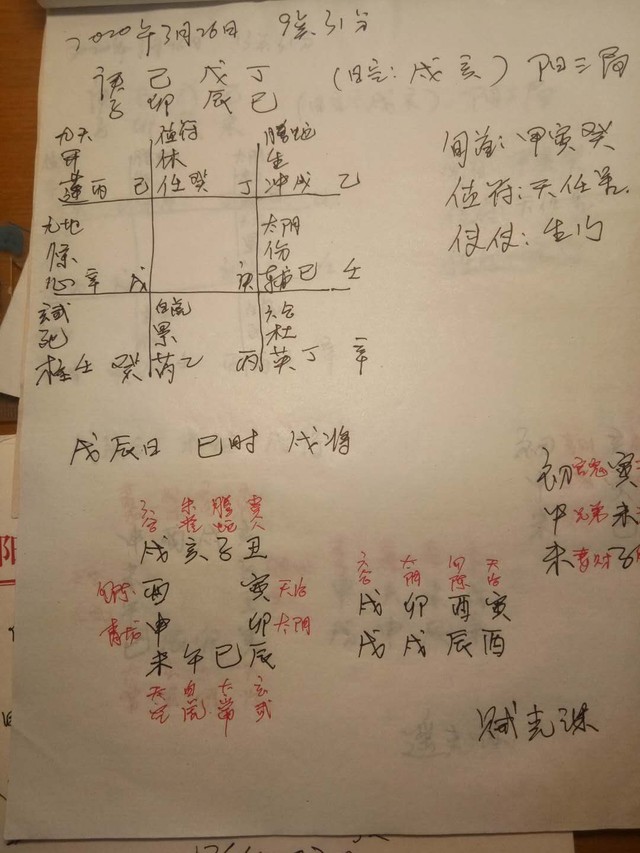 2020年3月26日 9点31分
庚 己 戊 丁 (日空:戌亥) 阳三局
子 卯 辰 巳
旬首:甲寅癸
值符:天任星
值使:生门
九天 值符 腾蛇
开 休 生
蓬丙 己 任癸 丁 冲戊 乙
九地 太阴
惊 伤
心辛 戊 庚 辅己 壬
玄武 白虎 六合
死 景 杜
柱壬 癸 芮乙 丙 英丁 辛
戊辰日 巳时 戌将
六合 朱雀 腾蛇 贵人
戌 亥 子 丑
勾陈 酉 寅 天后
青龙 申 卯 太阴
未 午 巳 辰
天空 白虎 太常 玄武
六合 太阴 勾陈 天后
戌 卯 酉 寅
戊 戌 辰 酉
初 官鬼 寅
中 兄弟 未
末 妻财 子
贼克课